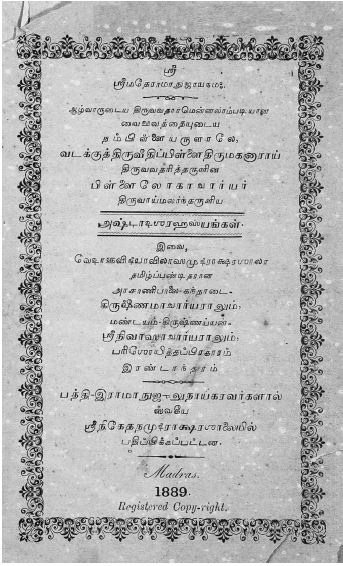 ஸ்ரீ
ஸ்ரீமதேராமாநுஜாயநம:
ஆழ்வாருடைய திருவவதாரமென்னலாம்படியான
வைபவத்தையுடைய
நம்பிள்ளையருளாலே,
வடக்குத்திருவீதிப்பிள்ளைதிருமகனாராய்
திருவவதரித்தருளின
பிள்ளைலோகாசார்யர்
திருவாய்மலர்ந்தருளிய
அஷ்டாதஶரஹஸ்யங்கள்.
இவை,
தமிழ்ப்பண்டிதரான
மண்டயம்-திருஷ்ணய்யன்-
ஸ்ரீநிவாஸாசார்யராலும்,
பரிஶோதித்தப்பிரகாரம்
இரண்டாந்தரம்
பத்தி-இராமாநுஜ-நாயகரவர்களால்
ஸ்வீய
ஸ்ரீநிகேதநமுத்ராக்ஷரஶாலையில்
பதிப்பிக்கப்பட்டன.
Madras.
1889.
Registered Copy-right.